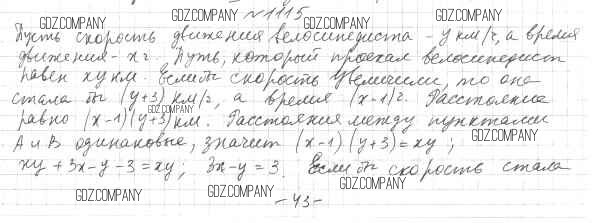 GDZ.COMPANY GDZ.COMPANY GDZ.COMPANY
№ 1115
Пусть скорость движения велосипедиста - y км/ч, а время
движения - x ч. Путь, который проехал велосипедист
равен xy км. Если бы скорость увеличили, то она
стала бы (y+3) км/ч, а время (x-1) ч. Расстояние
GDZ.COMPANY
равно (x-1)(y+3) км. Расстояния между пунктами
GDZ.COMPANY
А и В одинаковые, значит (x-1)(y+3)=xy;
xy+3x-y-3=xy; 3x-y=3. Если бы скорость стала
GDZ.COMPANY GDZ.COMPANY GDZ.COMPANY
-43-